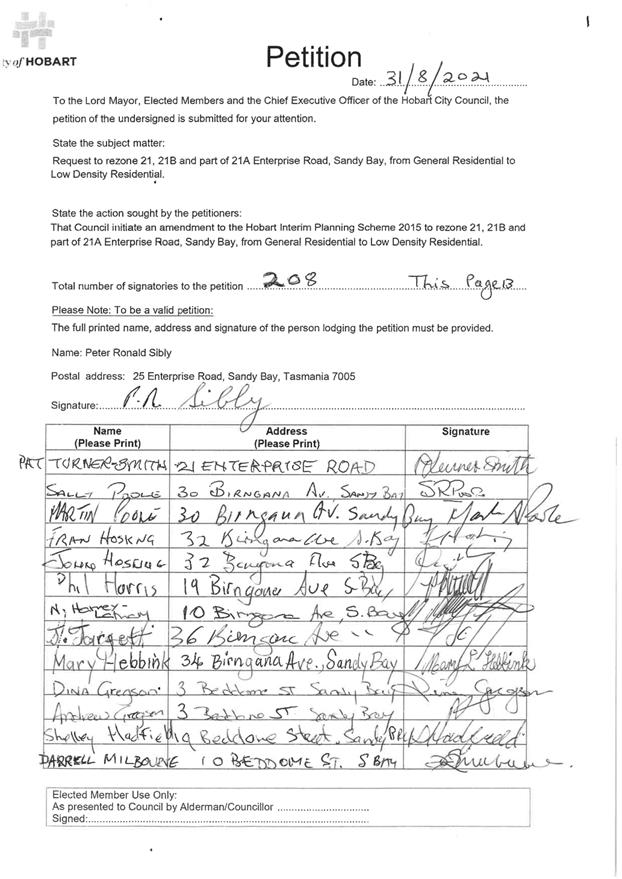 1
ty of HOBART
Petition
Date: 31/8/2021
To the Lord Mayor, Elected Members and the Chief Executive Officer of the Hobart City Council, the
petition of the undersigned is submitted for your attention.
State the subject matter:
Request to rezone 21, 21B and part of 21A Enterprise Road, Sandy Bay, from General Residential to
Low Density Residential.
State the action sought by the petitioners:
That Council initiate an amendment to the Hobart Interim Planning Scheme 2015 to rezone 21, 21B and
part of 21A Enterprise Road, Sandy Bay, from General Residential to Low Density Residential.
Total number of signatories to the petition 208 This Page 13
Please Note: To be a valid petition:
The full printed name, address and signature of the person lodging the petition must be provided.
Name: Peter Ronald Sibly
Postal address: 25 Enterprise Road, Sandy Bay, Tasmania 7005
Signature: P.R Sibly
Name Address Signature
(Please Print) (Please Print)
PAT TURNER-SMITH 21 ENTERPRISE ROAD Turner Smith
SALLY POOLE 30 BIRNGANA AV. SANDY BAY SRPoole
MARTIN POOLE 30 Birngana AV. Sandy Bay
FRAN HOSKING 32 Birngana Ave S. Bay
JOHN HOSKING 32 S Bay
Phil Harris 19 Birngana Ave S-Bay
10 Birngana Ave, S. Bay
J. Targett 36 Birngana Ave
Mary Hebbink 34 Birngana Ave., Sandy Bay Mary L Hebbink
DINA Gregson 3 Beddome ST Sandy Bay Gregson
Andrew Gregson 3 Beddome ST Sandy Bay
Shelley Hadfield Beddome Street, Sandy Hadfield
DARRELL MILBOURNE 10 BEDDOME ST. S BAY
Elected Member Use Only:
As presented to Council by Alderman/Councillor
Signed: